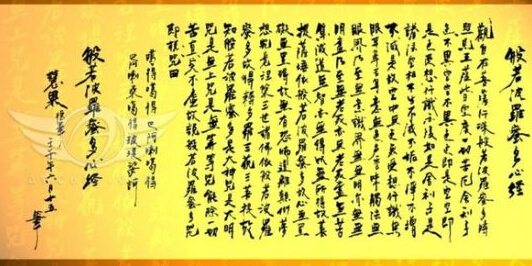 般若波羅蜜多心經
觀自在菩薩行深般若波羅蜜多時
照見五蘊皆空度一切苦厄舍利子
色不異空空不異色色即是空空即
是色受想行識亦復如是舍利子是
諸法空相不生不滅不垢不淨不增
不減是故空中無色無受想行識無
眼耳鼻舌身意無色聲香味觸法無
眼界乃至無意識界無無明亦無無
明盡乃至無老死亦無老死盡無苦
集滅道無智亦無得以無所得故菩
提薩埵依般若波羅蜜多故心無罣
礙無罣礙故無有恐怖遠離顛倒夢
想究竟涅槃三世諸佛依般若波羅
蜜多故得阿耨多羅三藐三菩提故
知般若波羅蜜多是大神咒是大明
咒是無上咒是無等等咒能除一切
苦真實不虛故說般若波羅蜜多咒
即說咒曰
揭諦揭諦 波羅揭諦
波羅僧揭諦菩提薩婆訶
般若波羅蜜多心經
年六月十五